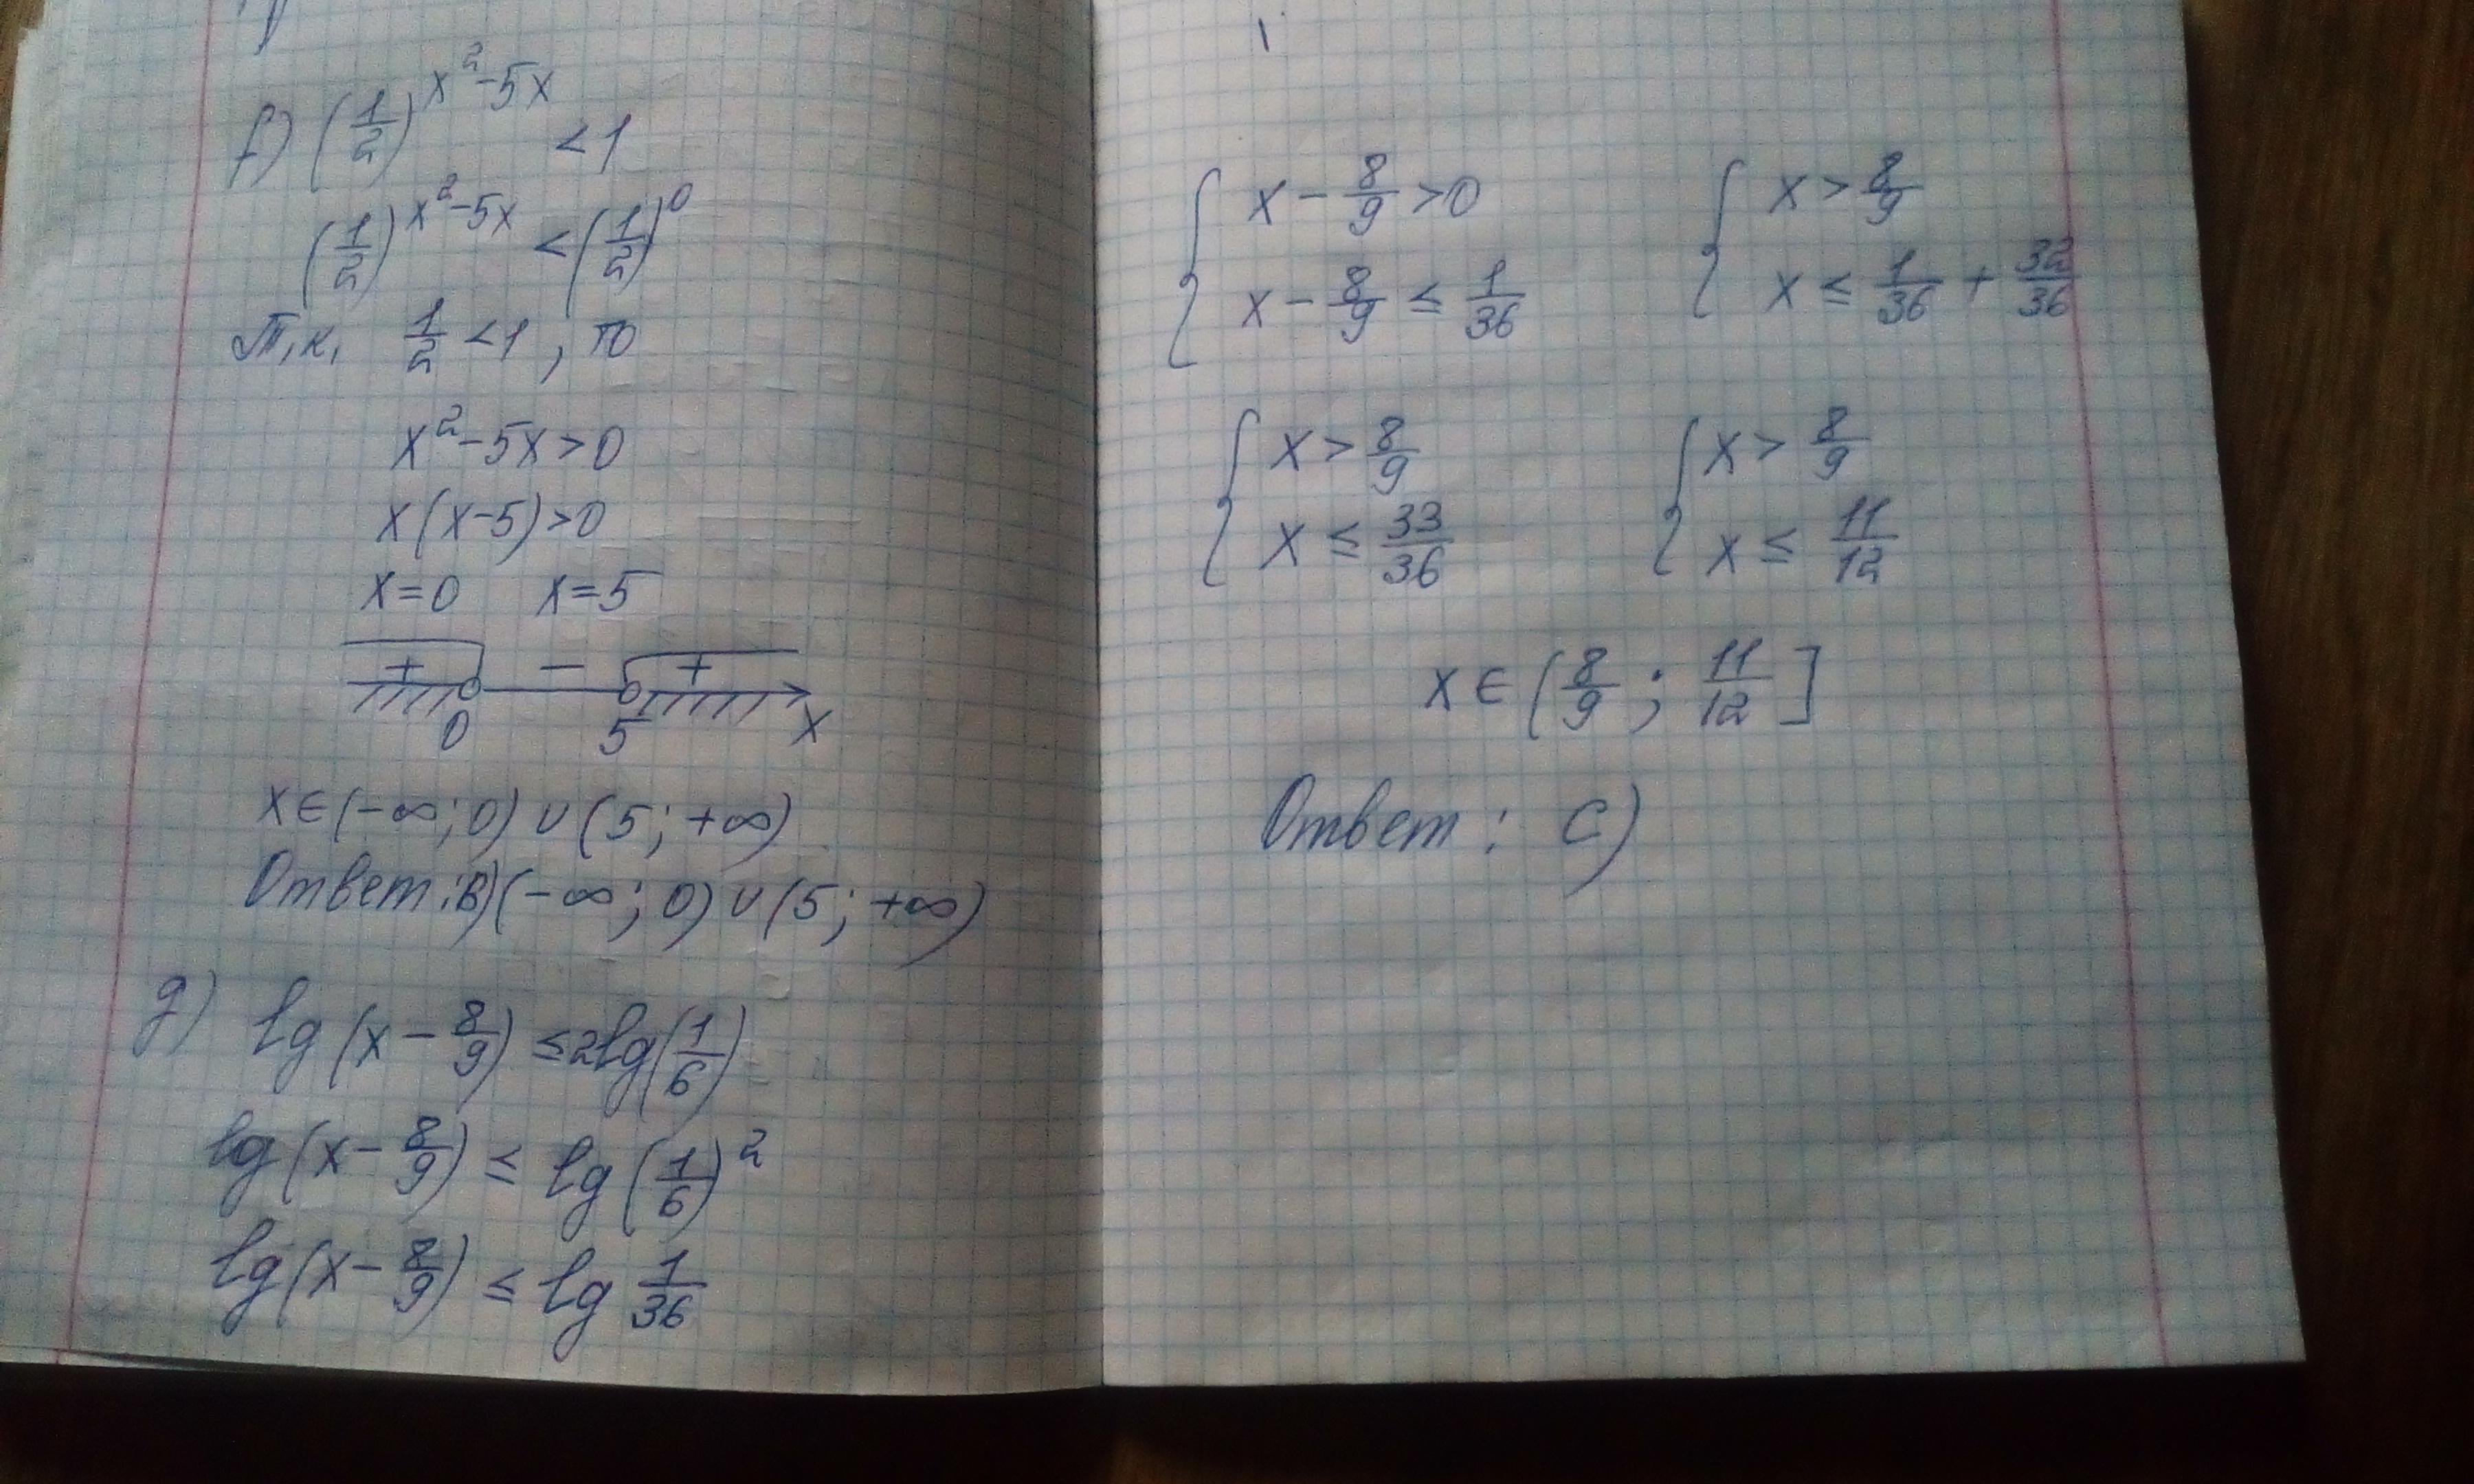 f) (1/2)^(x²-5x) < 1
(1/2)^(x²-5x) < (1/2)^0
Т.к. 1/2 < 1, то
x²-5x>0
x(x-5)>0
x=0 x=5
+ - +
0 5 x
x∈(-∞;0)∪(5;+∞)
Ответ: B)(-∞;0)∪(5;+∞)
g) lg(x - 8/9) ≤ 2lg(1/6)
lg(x - 8/9) ≤ lg(1/6)²
lg(x - 8/9) ≤ lg 1/36
{ x - 8/9 > 0 { x > 8/9
x - 8/9 ≤ 1/36 x ≤ 1/36 + 32/36
{ x > 8/9 { x > 8/9
x ≤ 33/36 x ≤ 11/12
x ∈ (8/9 ; 11/12]
Ответ: C)